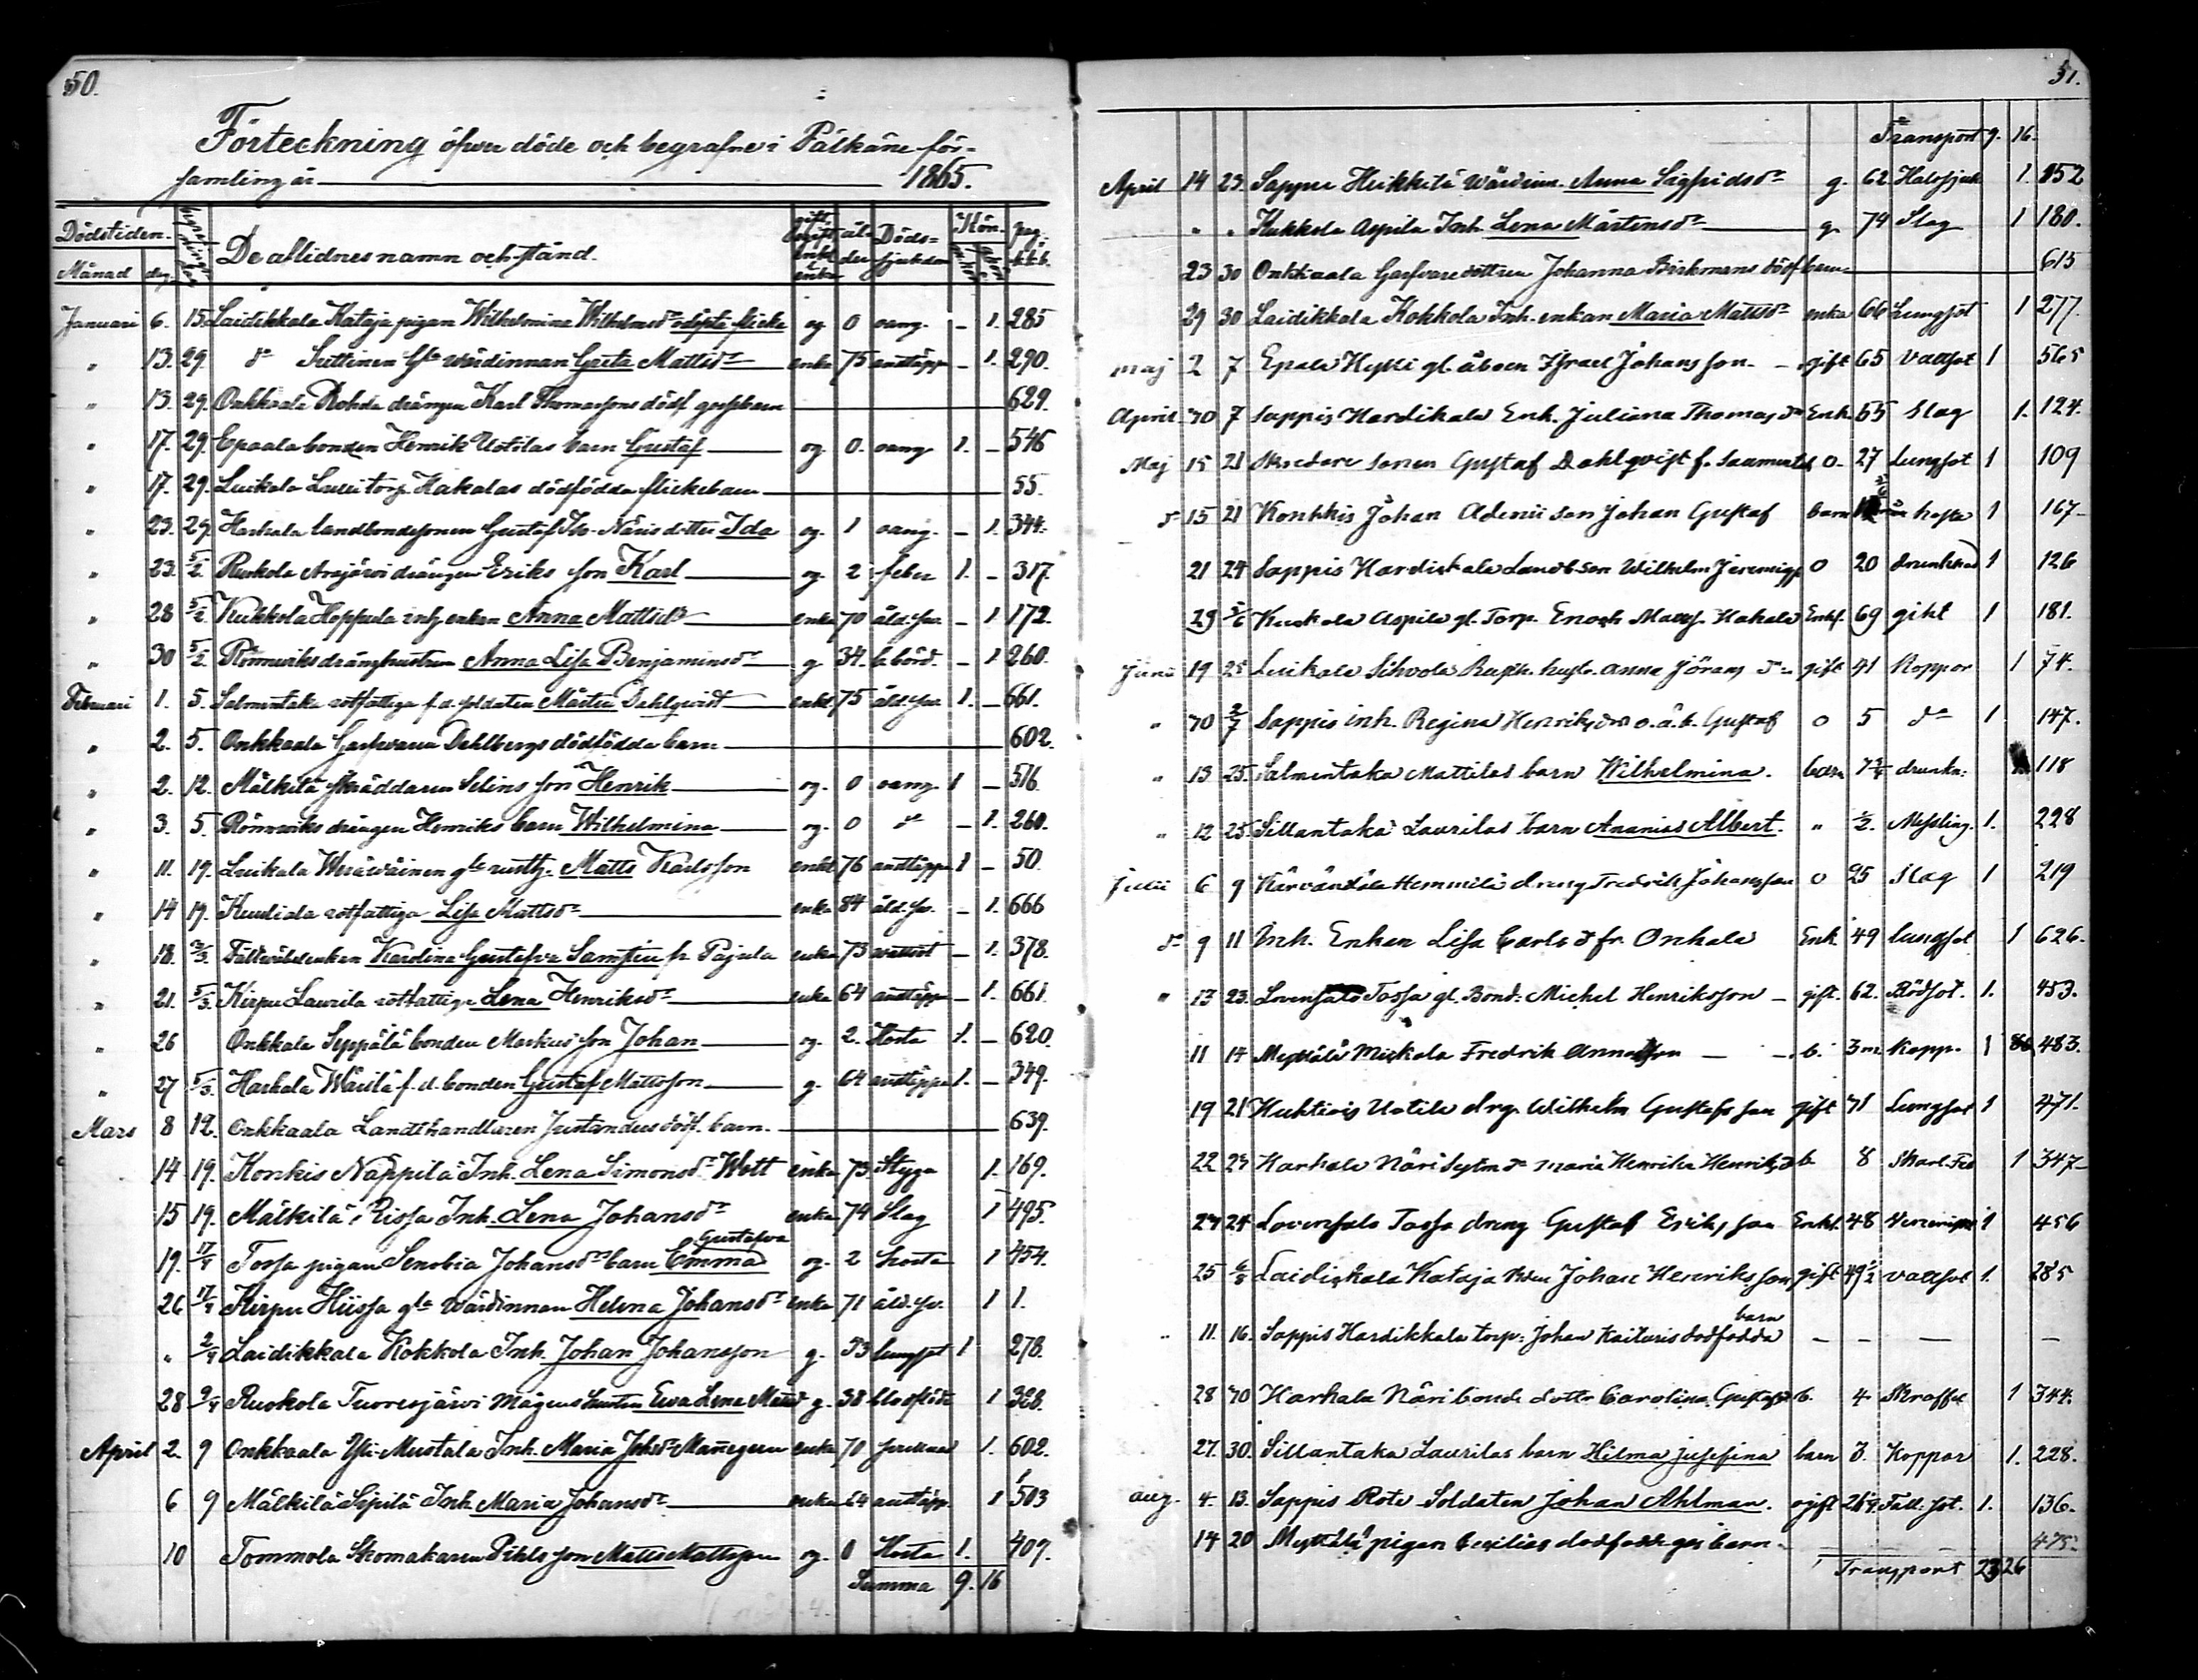 50.
Förteckning öfver döde och begrafne i Pälkäne för-
samling år 1865.
Dödstiden. Begrafnings dag De aflidnes namn och stånd. gift ogift enkl. enka ålder Döds- sjukdom Kön. pag.
Månad dag
Januari 6. 15. Laidikkala Kataja pigan Wilhelmina Wilhelmsdr oägta flicka og 0 oang. – 1. 285
" 13. 29. dº Suttinen gla wärdinnan Greta Mattsdr enka 75 andtäppa – 1. 290.
" 13. 29. Onkkaala Rohda drängen Karl Thomassons dödf. gossebarn 629.
" 17. 29. Epaala bonden Henrik Uotilas barn Gustaf og. 0. oang 1. – 546
" 17. 29. Luikala torp. Hakalas dödfödda flickebarn 55.
" 23. 29. Harhala landbondesonen Gustaf Iso-Näris dotter Ida og. 1 oang. – 1. 344.
" 23. 5/2. Ruokola Arajärvi drängen Eriks son Karl og. 2 feber 1. – 317.
" 28 5/2 Kukkola Hoppula inh. enkan Anna Mattsdr enka 70 åld.sv. – 1 172.
" 30 5/2. Rönnviks dränghustrun Anna Lisa Benjaminsdr g. 34. b.börd. – 1 260.
Februari 1. 5. Salmentaka rotfattiga f.d. soldaten Mårten Dahlqvist enkl. 75 åld.sv. 1. – 661.
" 2. 5. Onkkaala Garfvaren Dahlbergs dödfödda barn 602.
" 2. 12. Mälkilä skräddaren Selins son Henrik og. 0 oang. 1 – 516.
" 3. 5. Rönnviks drängen Henriks barn Wilhelmina og. 0 dº – 1. 260.
" 11. 19. Luikala Weräwäinen gle rusth. Matts Karlsson enkl 76 andtäppa 1 – 50.
" 14 19. Kuuliala rotfattiga Lisa Mattsdr enka 84 åld.sv. – 1. 666
" 18. 2/3. Fältwäbelenkan Karolina Gustafva Samsiin fr. Pajula enka 73 wattsot – 1. 378.
" 21. 5/3. Kirpu Laurila rotfattiga Lena Henriksdr enka 64 andtäppa – 1. 661.
" 26 Onkkala Seppälä bonden Markus' son Johan og. 2. Hosta 1. – 620.
" 27 5/3. Harhala Wärilä f.d. bonden Gustaf Mattsson g. 64 andtäppa 1. – 349.
Mars 8 12. Onkkaala Landthandlaren Justanders dödf. barn. 639.
14 19. Konkis Näppilä Inh. Lena Simonsdr Wett enka 73. Stygn 1. 169.
15 19. Mälkilä Rissa Inh. Lena Johansdr enka 74 Slag 1 495.
Gustafva
19. 17/4 Tossa pigan Senobia Johansdrs barn Emma og. 2 hosta 1 454.
26 17/4 Kirpu Hiissa gla wärdinnan Helena Johansdr enka 71 åld.sv. 1 1.
" 2/4 Laidikkala Kokkola Inh. Johan Johansson g. 53 lungsot 1 278.
28 2/4 Ruokola Tuoresjärvi Mågens hustru Ewa Lena Mattsd g. 38 blodflöde 1 328.
April 2. 9 Onkkaala Yli-Mustala Inh. Maria Johsdr enka 70 1. 602.
6 9 Mälkilä Sipilä Inh. Maria Johansdr enka 64 andtäpp. 1 503
10 Tommola Skomakaren Pihls son Matts Mattsson og. 0 Hosta 1. 407.
Summa 9. 16
51.
Transport 9. 16.
April 14 23. Sappee Heikkilä wärdinn. Anna Sigfridsdr g. 62 Halssjuk 1. 152
" " Kukkola Aspila Inh. Lena Mårtensdr g. 74 Slag 1 180.
23 30 Onkkaala Garfvare dottren Johanna Birkmans dödf barn 615
29 30 Laidikkala Kokkola Inh. enkan Maria Mattsdr enka 66 Lungsot 1 277.
Maj 2 7 Epala Hykki gl. åboen Israel Johansson. gift 65 vattsot 1 565
April 30 7 Sappis Hardikala Enk. Juliana Thomasdr Enk. 65 Slag 1. 124.
Maj 15 21 Skredare sonen Gustaf Dahlqvist f. Saamental o. 27 lungsot 1 109
dº 15 21 Konkkis Johan Adenii son Johan Gustaf barn hosta 1 167.
21 24 Sappis Hardikala Landb son Wilhelm Jeremiss o 20 drunknad 1 126
29 5/6 Kuckola Aspila gl. Torp. Enoch Matss. Hakala Enkl. 69 gikt 1 181.
Juni 19 25 Luikala Sihvola Rusth. hustr. Anna Jörans dr gift 41 Koppor 1 74.
" 30 2/7 Sappis inh. Regina Henriksdrs o.ä.b. Gustaf o 5 dº 1 147.
" 13 25. Salmentaka Mattilas barn Wilhelmina. barn 7¾ drunkn. 118
" 12 25. Sillantaka Laurilas barn Ananias Albert. " ½. Messling. 1. 228
Julii 6 9 Kärvändelä Hemmilä dreng Fredrik Johansson o 25 Slag 1 219
dº 9 11 Inh. Enkan Lisa Carlsd fr. Onkala Enk 49 lungsot 1 626.
" 13 23. Lovensalo Tossa gl. Bond. Michel Henriksson – gift. 62. Rödsot. 1. 453.
11 14 Myttälä Mickola Fredrik Annasson b. 3 m. Kopp. 1 483.
19 21 Kuhtiois Uotila drg. Wilhelm Gustafsson gift 71 Lungsot 1 471.
22 24 Harhala Näri Maria Henrika Henriksd b 8 Skarl. Feb 1 347
24 24 Lovensalo Tossa dreng Gustaf Eriksson Enkl. 48 1 456
25 6/8 Laidickala Kataja Johan Henriksson gift 49½ vattsot 1. 285
barn
" 11. 16. Sappis Hardikkala torp: Johan Kaituris dödfödda – – – –
28 30 Harhala Näri bond. dottr Carolina Gustafsd b. 4 Skroffel 1 344.
27. 30. Sillantaka Laurilas barn Hilma Josefina barn 3. Koppor 1. 228.
Aug. 4. 13. Sappis Rote Soldaten Johan Ahlman. ogift 26 Fall. sot. 1. 136.
14 20 Myttälä pigan Cecilias dödfödde gos barn. 475.
Transport 23 26